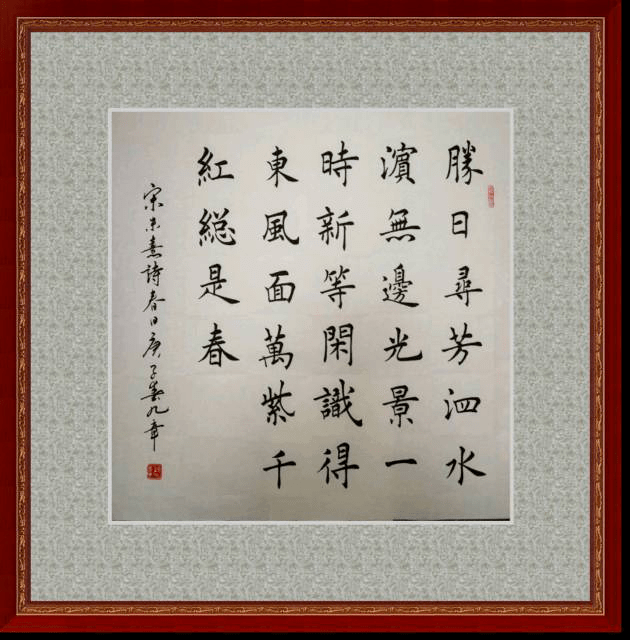 勝日尋芳泗水
濵無邊光景一
時新等閑識得
東風面萬紫千
紅縂是春
宋朱熹詩春日庚子葵九章